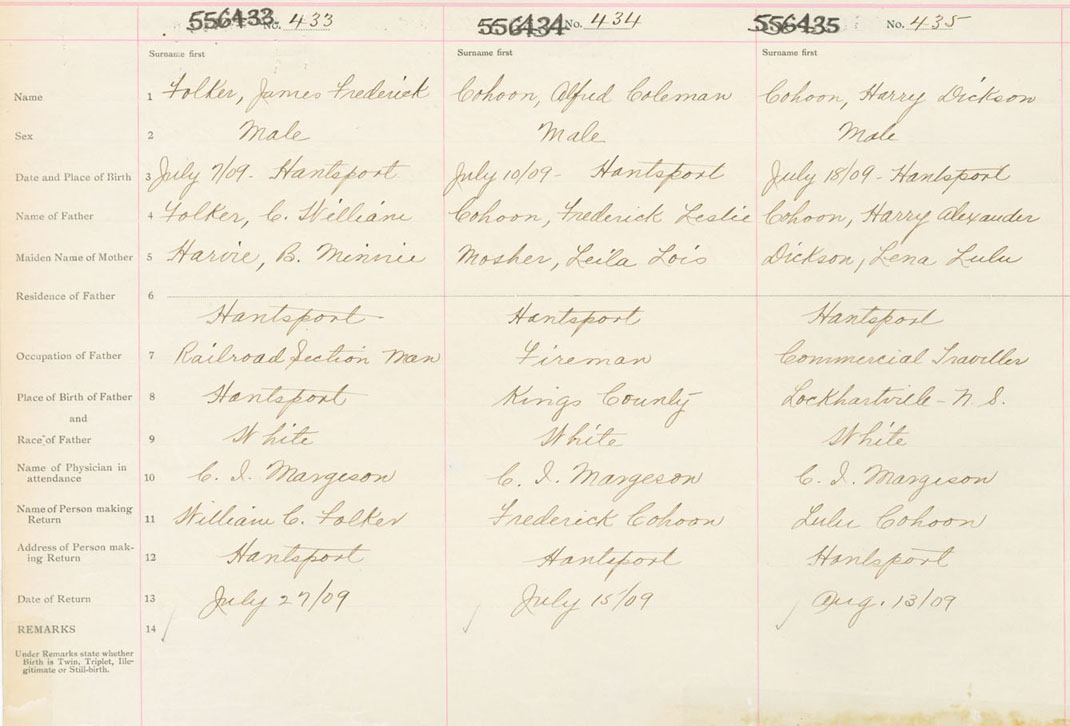 556433 No. 433 556434 No. 434 556435 No. 435
Surname first Surname first Surname first
Name 1 Folker, James Frederick Cohoon, Alfred Coleman Cohoon, Harry Dickson
Sex 2 Male Male Male
Date and Place of Birth 3 July 7/09 - Hantsport July 10/09 - Hantsport July 18/09 - Hantsport
Name of Father 4 Folker, C. William Cohoon, Frederick Leslie Cohoon, Harry Alexander
Maiden Name of Mother 5 Harvie, B. Minnie Mosher, Leila Lois Dickson, Lena Lulu
Residence of Father 6
Hantsport Hantsport Hantsport
Occupation of Father 7 Railroad Section Man Fireman Commercial Traveller
Place of Birth of Father 8 Hantsport Kings County Lockhartville - N. S.
and
Race of Father 9 White White White
Name of Physician in
attendance 10 C. I. Margeson C. I. Margeson C. I. Margeson
Name of Person making
Return 11 William C. Folker Frederick Cohoon Lulu Cohoon
Address of Person mak-
ing Return 12 Hantsport Hantsport Hantsport
Date of Return 13 July 27/09 July 15/09 Aug. 13/09
REMARKS 14
Under Remarks state whether
Birth is Twin, Triplet, Ille-
gitimate or Still-birth.